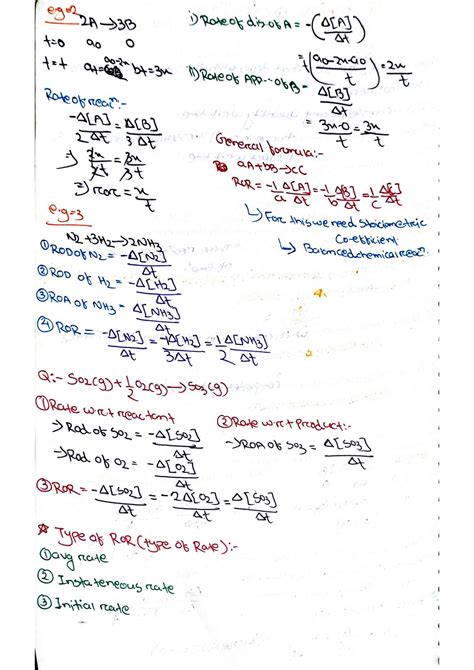 e.g=2
2A→3B
t=0 a₀ 0
t=t at=a₀-2x bt=3x
i) Rate of dis. of A = -(Δ[A]/Δt)
= -(a₀-2x-a₀/t) = 2x/t
ii) Rate of App... of B = Δ[B]/Δt
= 3x-0/t = 3x/t
Rate of reacⁿ:-
-Δ[A]/2Δt = Δ[B]/3Δt
⇒ 2x/2t = 3x/3t
⇒ ror = x/t
General formula:-
aA+bB→cC
ROR = -1/a Δ[A]/Δt = -1/b Δ[B]/Δt = 1/c Δ[C]/Δt
↳ For this we need Stoiciometric
Co-efficient
↳ Balanced chemical reacⁿ.
e.g=3
N₂+3H₂→2NH₃
① ROD of N₂ = -Δ[N₂]/Δt
② ROD of H₂ = -Δ[H₂]/Δt
③ ROA of NH₃ = Δ[NH₃]/Δt
④ ROR = -Δ[N₂]/Δt = -1Δ[H₂]/3Δt = 1/2 Δ[NH₃]/Δt
Q:- SO₂(g)+1/2 O₂(g)→SO₃(g)
① Rate w.r.t reactant
⇒ Rod of SO₂ = -Δ[SO₂]/Δt
→ Rod of O₂ = -Δ[O₂]/Δt
② Rate w.r.t Product:-
→ ROA of SO₃ = Δ[SO₃]/Δt
③ ROR = -Δ[SO₂]/Δt = -2Δ[O₂]/Δt = Δ[SO₃]/Δt
☆ Type of ROR (type of Rate):-
① avg rate
② Instateneous rate
③ Initial rate